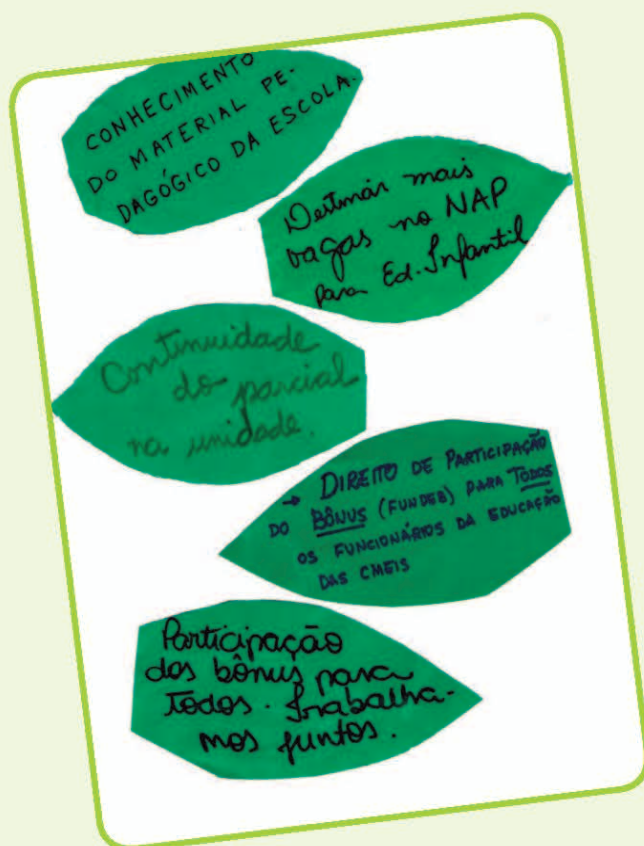 CONHECIMENTO
DO MATERIAL PE-
DAGÓGICO DA ESCOLA.
Destinar mais
vagas no NAP
para Ed. Infantil
Continuidade
do parcial
na unidade.
→ DIREITO DE PARTICIPAÇÃO
DO BÔNUS (FUNDEB) PARA TODOS
OS FUNCIONÁRIOS DA EDUCAÇÃO
DAS CMEIS
Participação
dos bônus para
todos. Trabalha-
mos juntos.